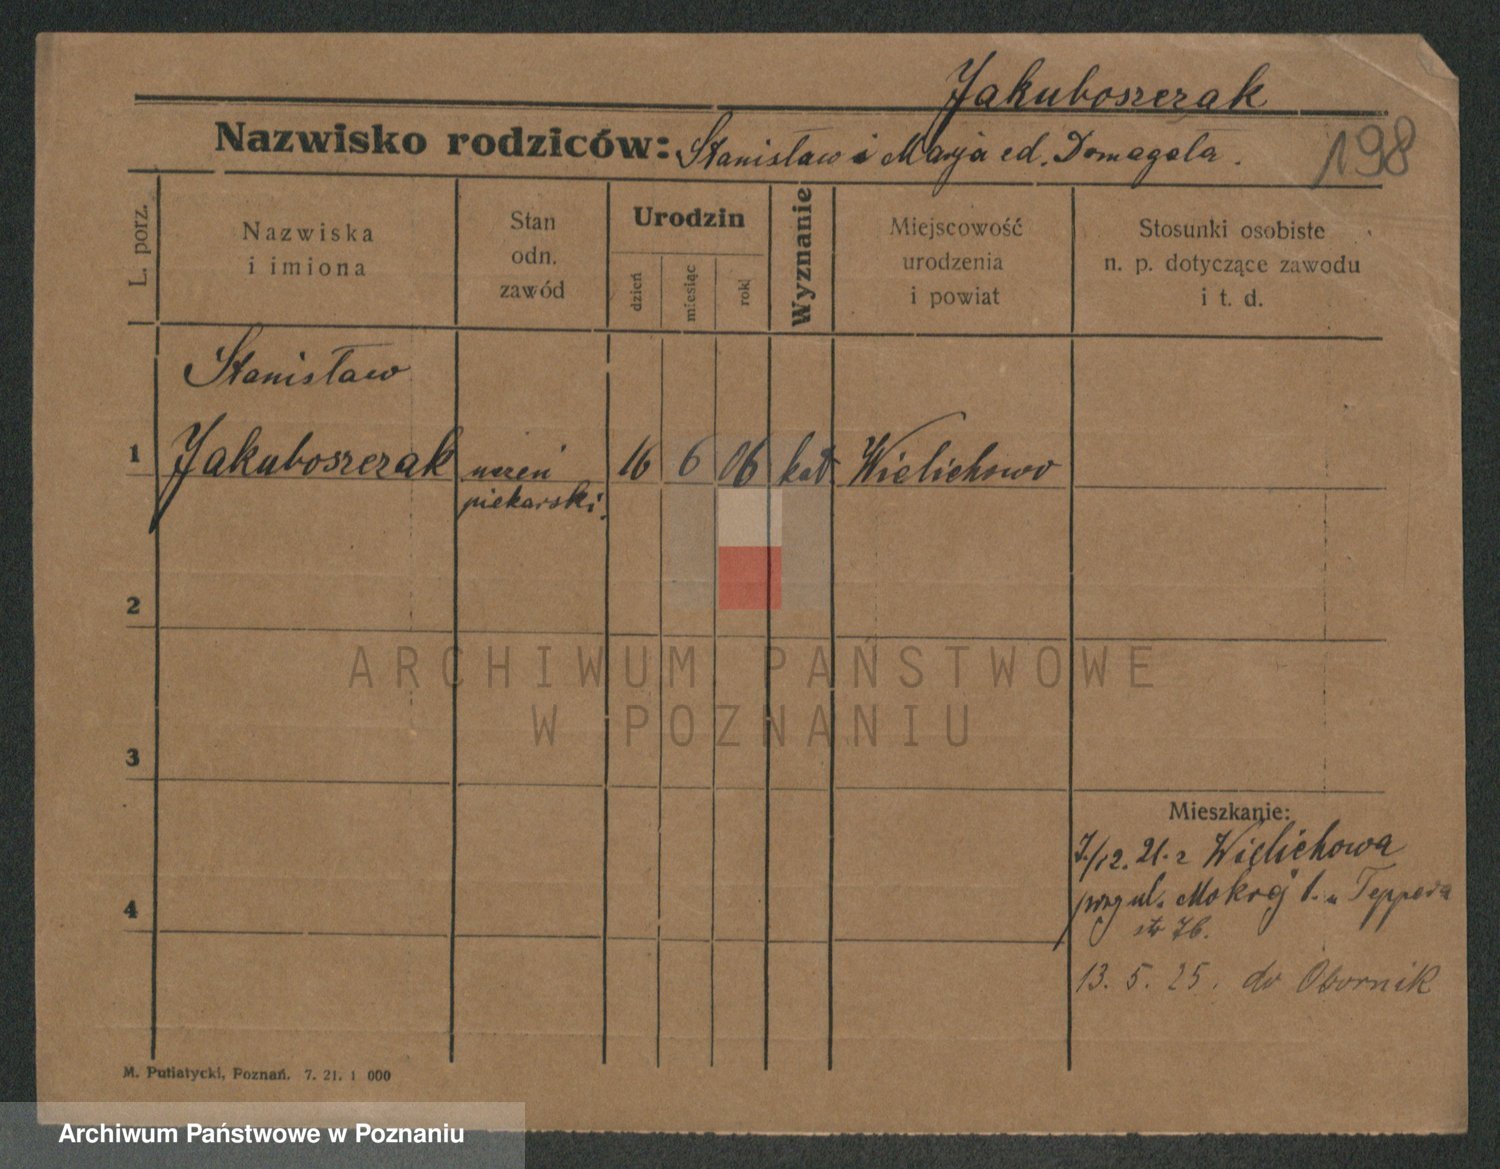 Jakuboszczak
Nazwisko rodziców: Stanisław i Marja ed. Domagała.
198
L. porz.
Nazwiska
i imiona
Stan
odn.
zawód
Urodzin
dzień
miesiąc
rok
Wyznanie
Miejscowość
urodzenia
i powiat
Stosunki osobiste
n. p. dotyczące zawodu
i t. d.
Stanisław
1 Jakuboszczak uczeń 16 6 06 kat. Wielichowo
piekarski.
2
3
4
ARCHIWUM PAŃSTWOWE
W POZNANIU
Mieszkanie:
7./12. 21. z Wielichowa
przy ul. Mokrej 1. uTeppera
str 76.
13. 5. 25. do Obornik
M. Putiatycki, Poznań. 7. 21. 1 000
Archiwum Państwowe w Poznaniu